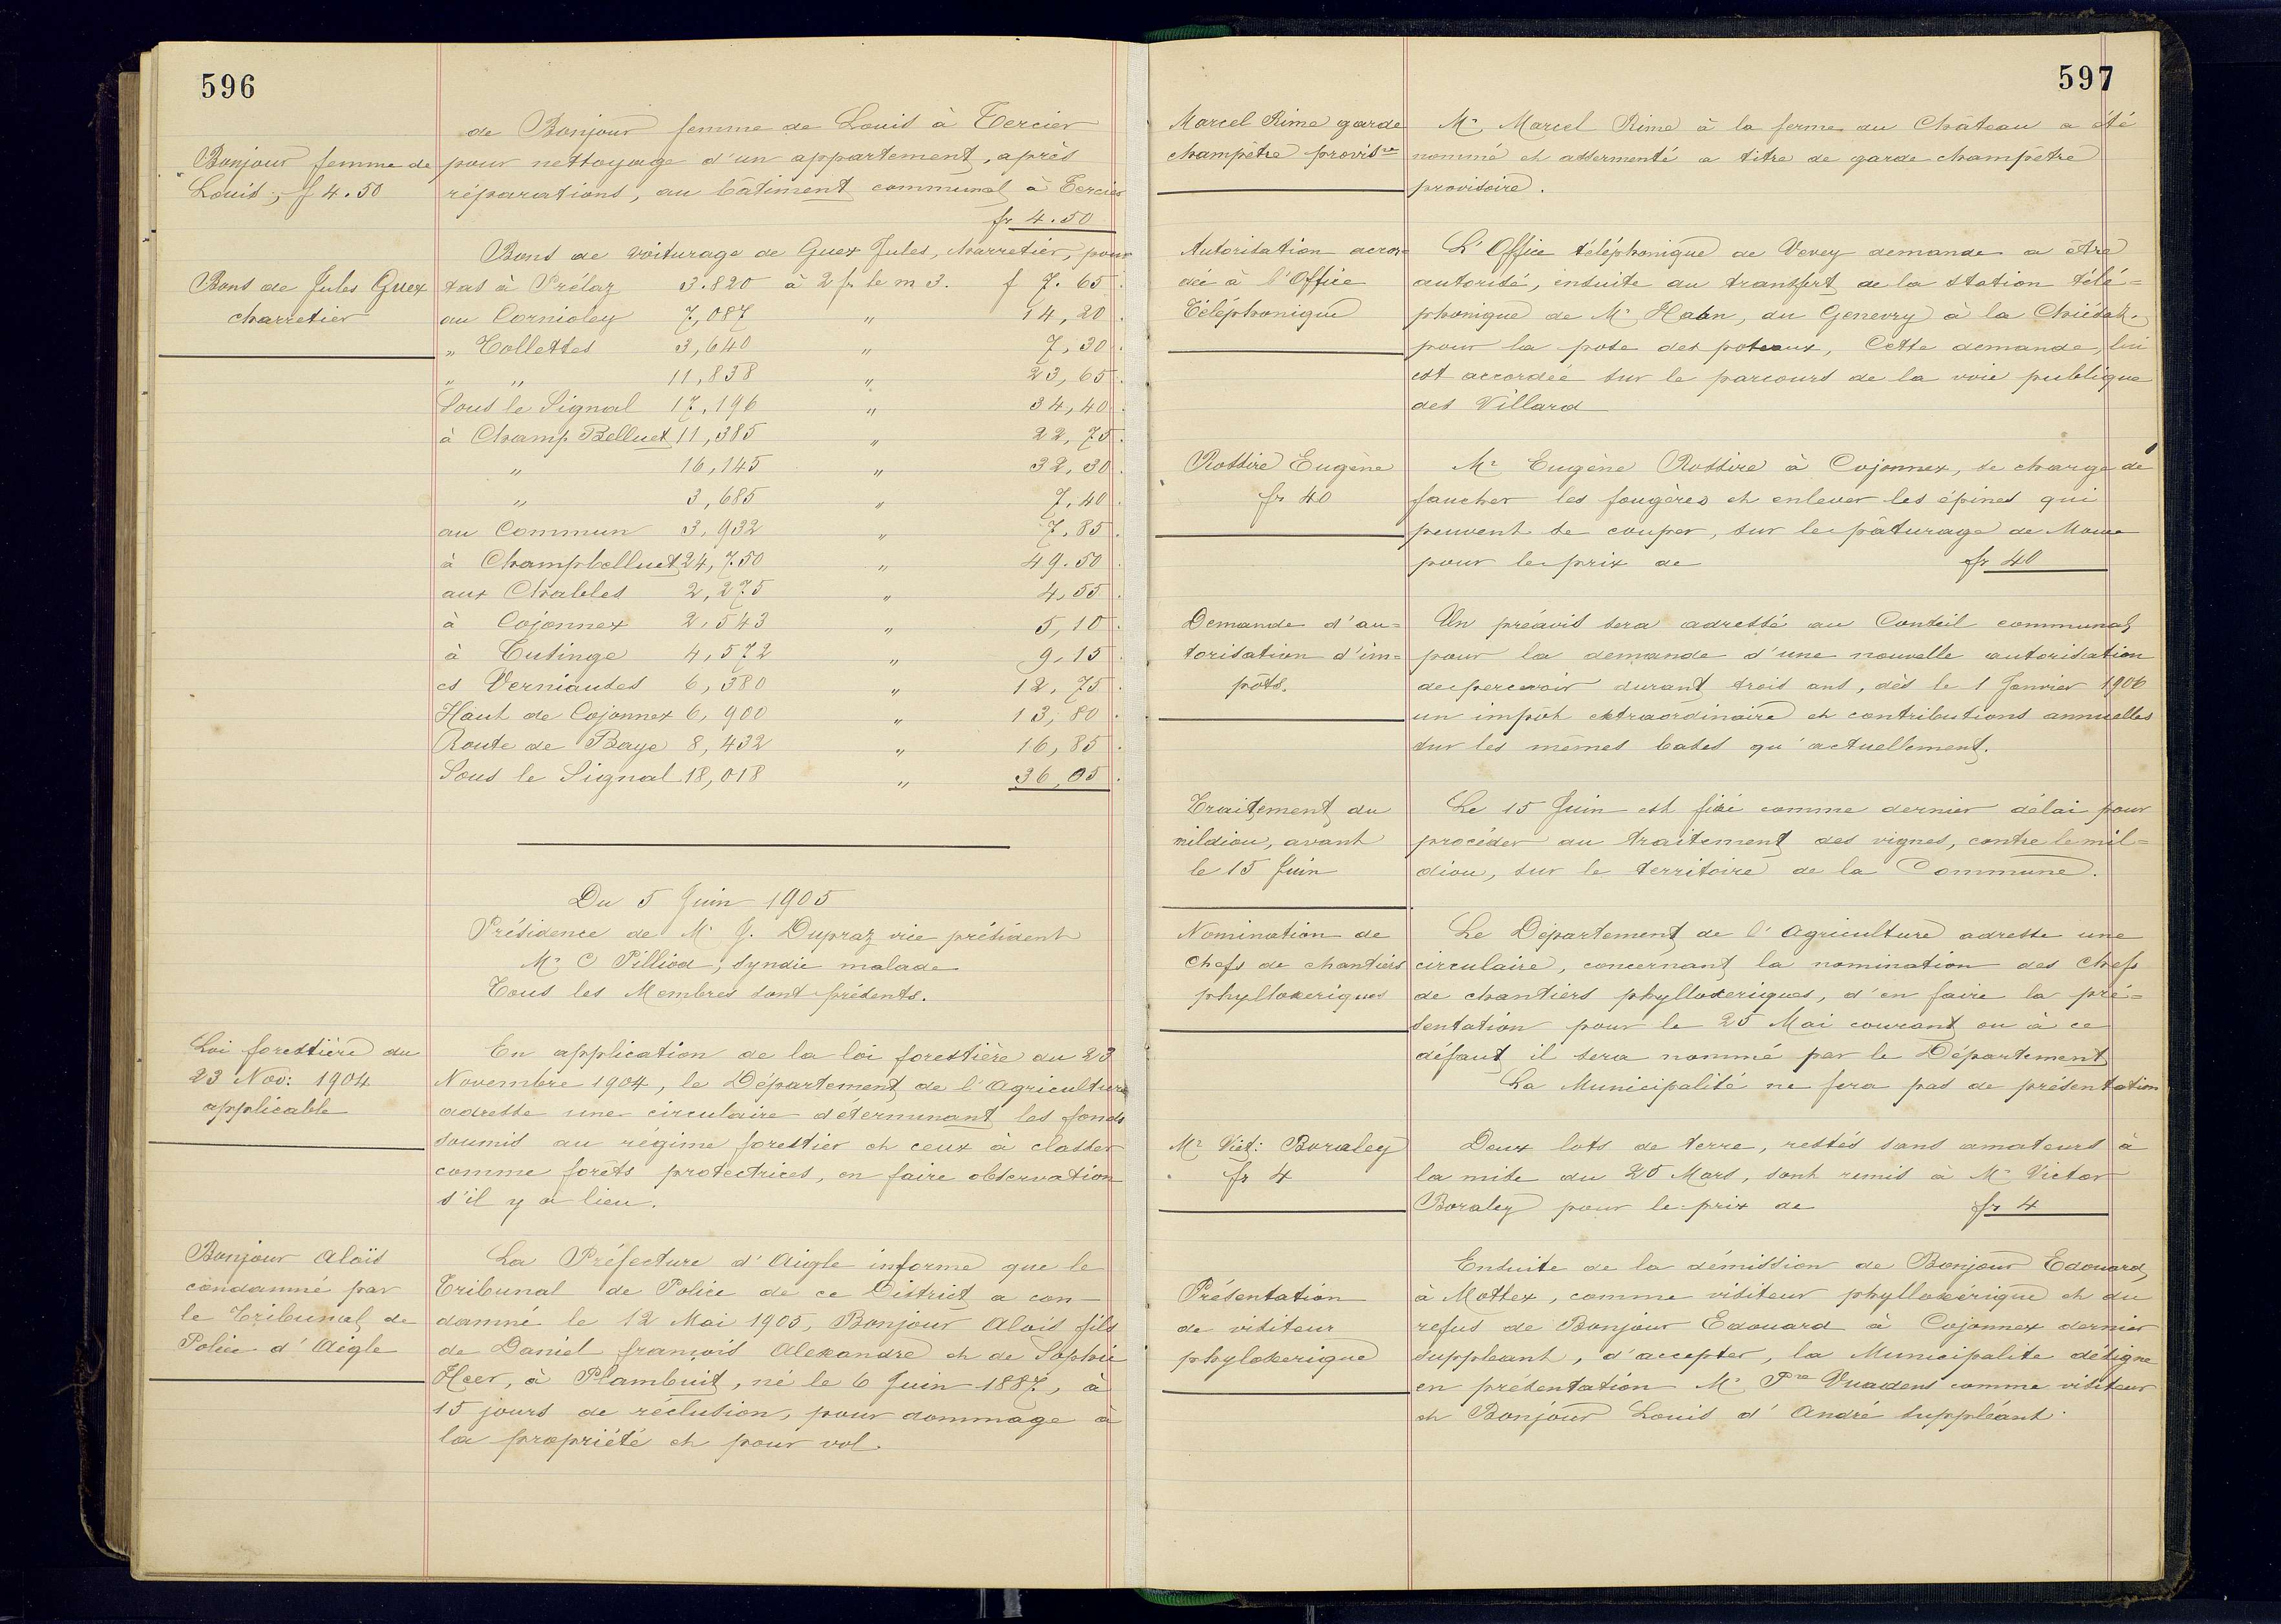 596
de Bonjour femme de Louis à Tercier
Bonjour femme de
Louis, f 4.50
pour nettoyage d'un appartement, après
réparations, au bâtiment communal à Tercier
fr 4.50
Bons de Jules Guex
charretier
Bons de voiturage de Guex Jules, charretier, pour
tas à Prélaz 3.820 à 2 fr le m 3. f 7.65.
au Cornioley 7,087 " 14,20.
" Collettes 3,640 " 7,30.
" " 11,838 " 23,65.
Sous le Signal 17,196 " 34,40.
à Champ Belluet 11,385 " 22,75.
" 16,145 " 32,30.
" 3,685 " 7,40.
au Commun 3,932 " 7,85.
à Champbelluet 24,750 " 49.50.
aux Chables 2,275 " 4,55.
à Cojonnex 2,543 " 5,10.
à Tusinge 4,572 " 9,15.
es Verniaudes 6,380 " 12,75.
Haut de Cojonnex 6,900 " 13,80.
Route de Baye 8,432 " 16,85.
Sous le Signal 18,018 " 36,05.
Du 5 Juin 1905
Présidence de Mr J. Dupraz vice président
Mr C Pilliod, syndic malade
Tous les Membres sont présents.
Loi forestière du
23 Nov: 1904
applicable
En application de la loi forestière du 23
Novembre 1904, le Département de l'Agriculture
adresse une circulaire déterminant les fonds
soumis au régime forestier et ceux à classer
comme forêts protectrices, en faire observation
s'il y a lieu.
Bonjour Aloïs
condamné par
le Tribunal de
Police d'Aigle
La Préfecture d'Aigle informe que le
Tribunal de Police de ce District a con-
damné le 12 Mai 1905, Bonjour Alois fils
de Daniel françois Alexandre et de Sophie
Heer, à Plambuit, né le 6 Juin 1887, à
15 jours de réclusion, pour dommage à
la propriété et pour vol.
597
Marcel Rime garde
champêtre provisre
Mr Marcel Rime à la ferme du Château a été
nommé et assermenté a titre de garde champêtre
provisoire.
Autorisation accor=
dée à l'Office
Téléphonique
L'Office téléphonique de Vevey demande a être
autorisé, ensuite du transfert de la station télé=
phonique de Mr Hahn, du Genevry à la Chiésaz.
pour la pose des poteaux, Cette demande, lui
est accordée sur le parcours de la voie publique
des Villard
Rossire Eugène
fr 40
Mr Eugène Rossire à Cojonnex, se charge de
faucher les fougères et enlever les épines qui
peuvent se couper, sur le pâturage de
pour le prix de fr 40
Demande d'au=
torisation d'im=
pôts.
Un préavis sera adressé au Conseil communal,
pour la demande d'une nouvelle autorisation
de percevoir durant trois ans, dès le 1 Janvier 1906
un impôt extraordinaire et contributions annuelles
sur les mêmes bases qu'actuellement.
Traitement du
mildiou, avant
le 15 Juin
Le 15 Juin est fixé comme dernier délai pour
procéder au traitement des vignes, contre le mil=
diou, sur le territoire de la Commune.
Nomination de
Chefs de chantiers
phylloxeriques
Le Département de l'Agriculture adresse une
circulaire, concernant la nomination des Chefs
de chantiers phylloxeriques, d'en faire la pré=
sentation pour le 25 Mai courant ou à ce
défaut il sera nommé par le Département
La Municipalité ne fera pas de présentation
Mr Vict: Boraley
fr 4
Deux lots de terre, restés sans amateurs à
la mise du 25 Mars, sont remis à Mr Victor
Boraley pour le prix de fr 4
Présentation
de visiteur
phyloxerique
Ensuite de la démission de Bonjour Edouard,
à Mottex, comme visiteur phylloxérique et du
refus de Bonjour Edouard à Cojonnex dernier
suppleant, d'accepter, la Municipalite désigne
en présentation Mr Pre Vuadens comme visiteur
et Bonjour Louis d'André suppléant.